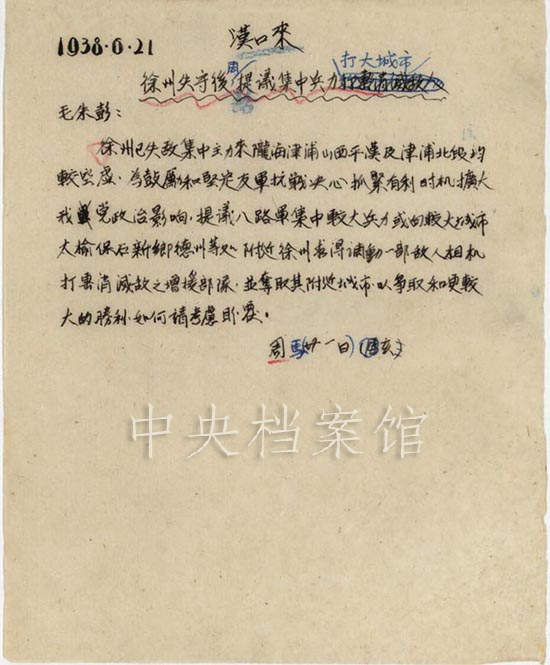 漢口來
1938.6.21
周 打大城市
徐州失守後提議集中兵力打擊消滅敌人
毛朱彭：
徐州已失敌集中主力來隴海津浦山西平漢及津浦北段均
較空虛，為鼓勵和堅定友軍抗戰决心抓緊有利时机擴大
我黨政治影响，提議八路軍集中較大兵力或向較大城市
太榆保石新鄉德州等处附近徐州求得調動一部敌人相机
打擊消滅敌之增援部隊，並奪取其附近城市，以爭取和更較
大的勝利，如何請考慮盼覆。
周馬(廿一日)
中央档案馆